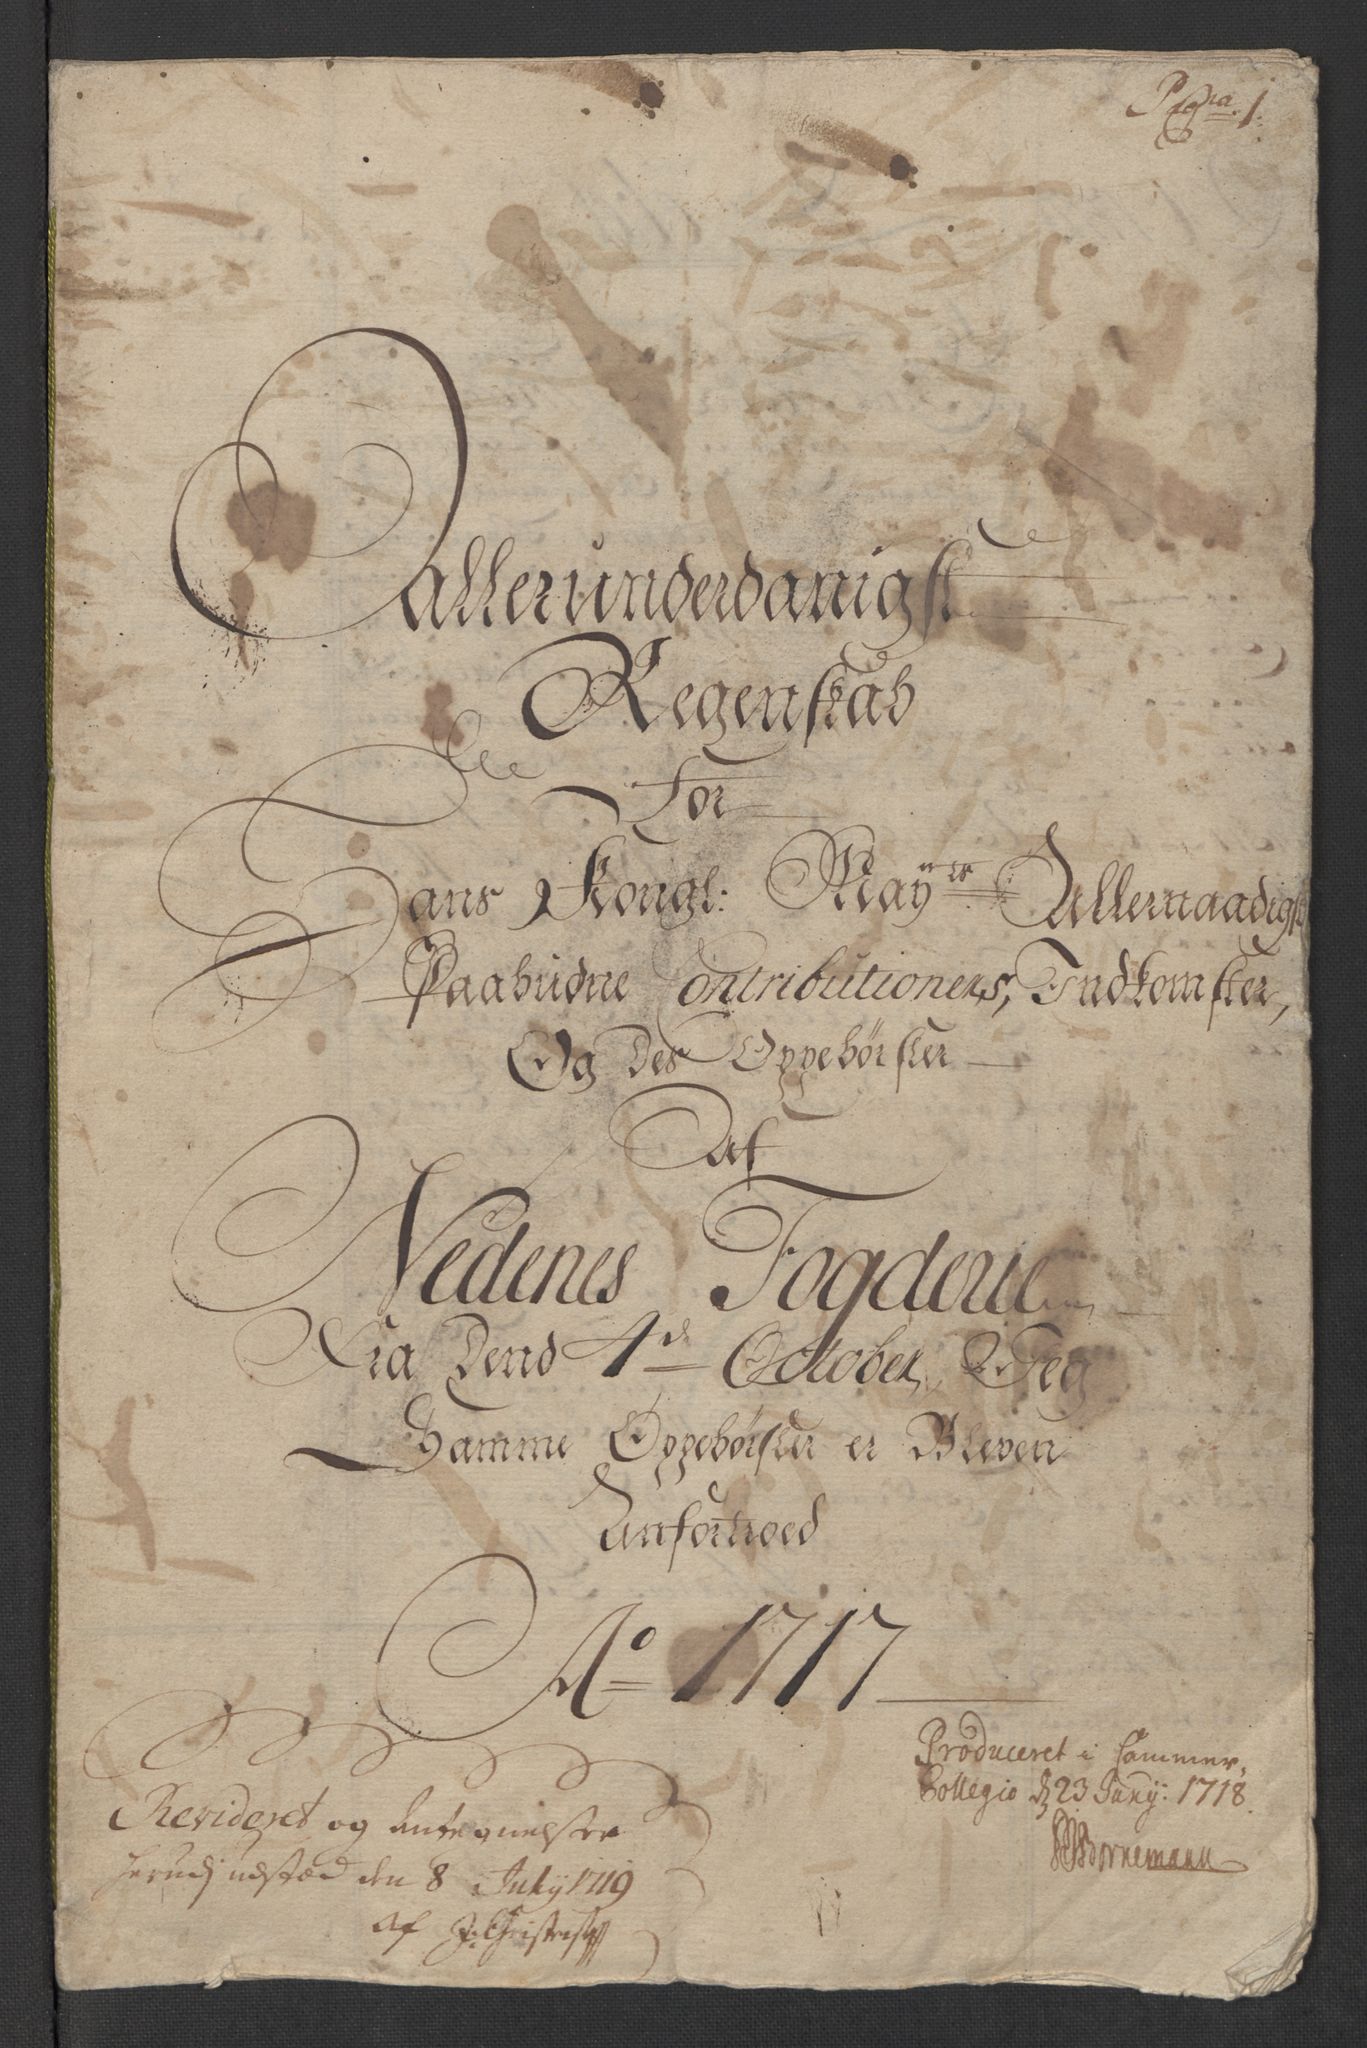 Pagina 1
Allerunderdanigst
Regenskab
For
Hans Kongl: Mayts Allernaadigst
Paabudne Contributioners, Indkomster,
Og Des Oppebørster
Af
Nedenes Fogderie
Fra Dend 4de October, Jeg
Samme Oppebørster er Bleven
Anfortroed
Ao 1717
Produceret i Cammer,
Collegio d 23 Junij: 1718
Bornemann
Revideret og Antegnelser
herudj udstæd den 8 July 1719
af